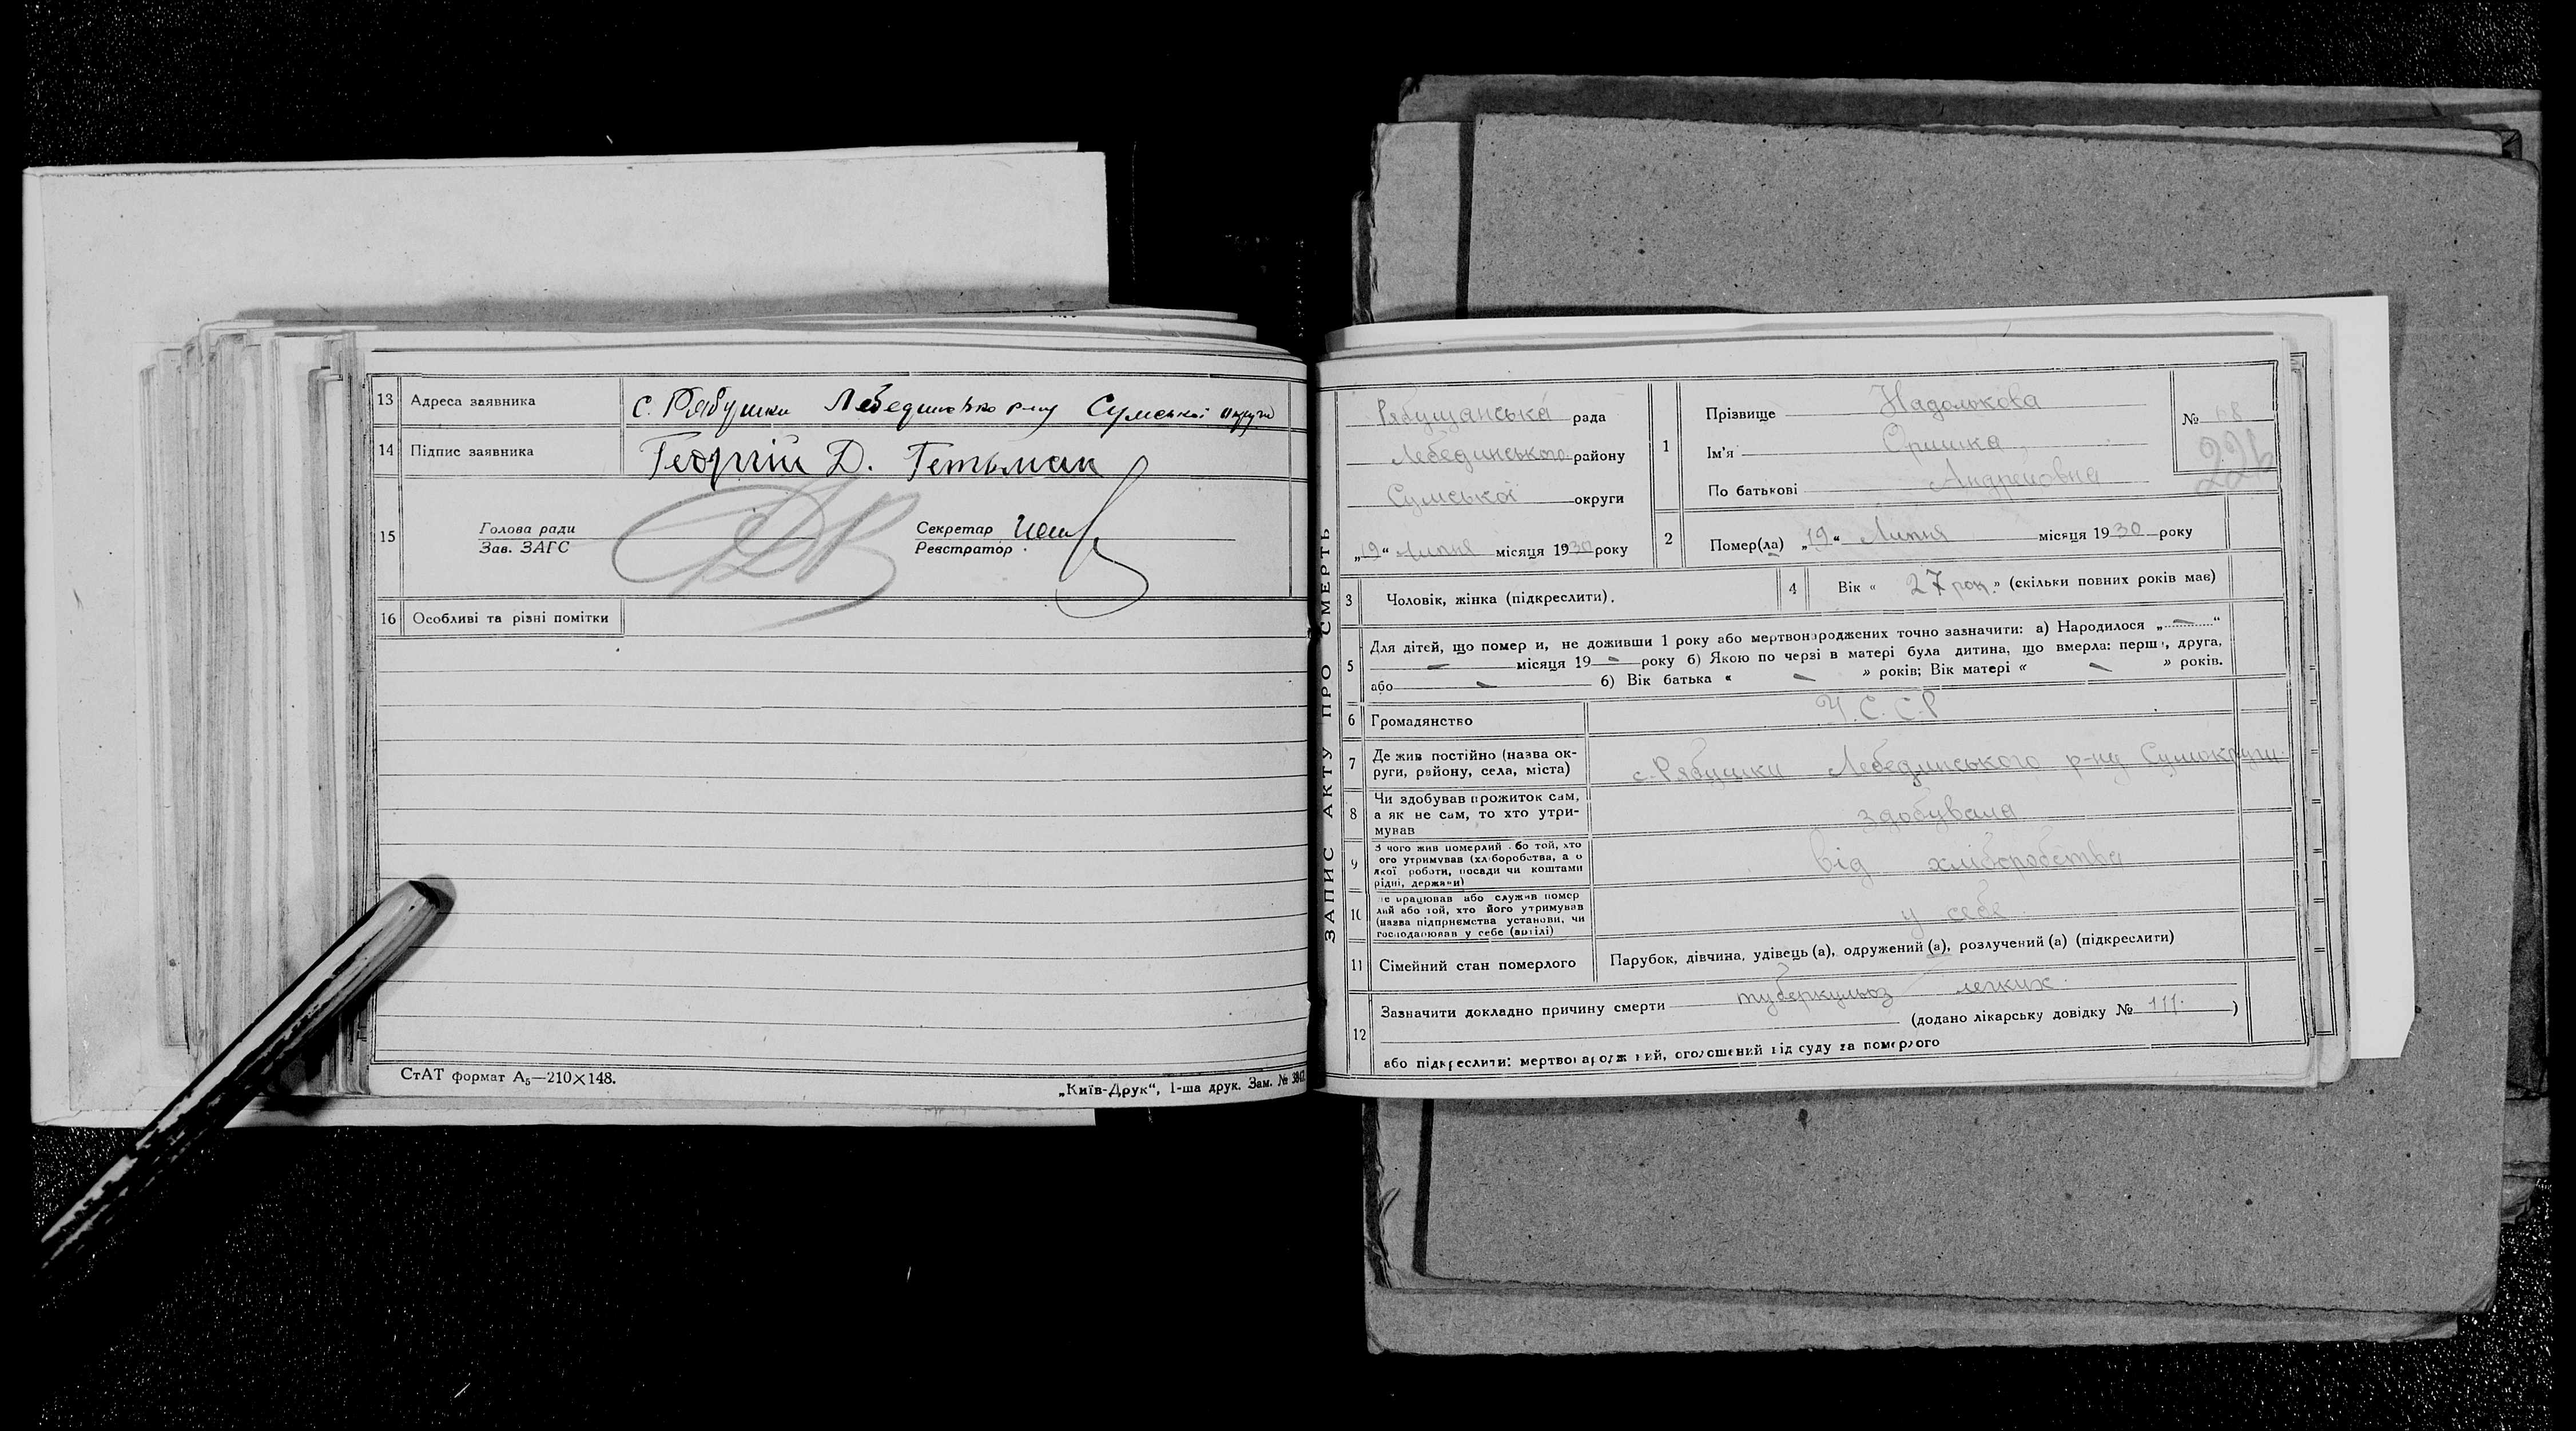 13 Адреса заявника с. Рябушки Лебединсько р-ну Сумської округи
14 Підпис заявника Георгій Д. Гетьман
15 Голова ради
Зав. ЗАГС
Секретар
Реєстратор
16 Особливі та різні помітки
СтАТ формат А₅—210×148.
„Київ-Друк“, 1-ша друк. Зам. №
ЗАПИС АКТУ ПРО СМЕРТЬ
Рябущанська рада
Лебединського району
Сумської округи
„19“ Липня місяця 1930 року
1 Прізвище Надолькова
Ім'я Оришка
По батькові Андреиовна
№ 68
226
2 Помер(ла) „19“ Липня місяця 1930 року
3 Чоловік, жінка (підкреслити).
4 Вік « 27 рок.» (скільки повних років має)
5 Для дітей, що помер и, не доживши 1 року або мертвонароджених точно зазначити: а) Народилося „ “
місяця 19 року б) Якою по черзі в матері була дитина, що вмерла: перш , друга,
або б) Вік батька « » років; Вік матері « » років.
6 Громадянство У.С.С.Р
7 Де жив постійно (назва ок-
руги, району, села, міста) с. Рябушки Лебединського р-ну Сумокруги
8 Чи здобував прожиток сам,
а як не сам, то хто утри-
мував здобувала
9 З чого жив померлий бо той, хто
ого утримував (хліборобства, а о
якої роботи, посади чи коштами
рідні, держави) від хліборобства
10 е працював або служив помер
лий або той, хто його утримував
(назва підприємства установи, чи
господарював у себе (артілі) у себе
11 Сімейний стан померлого Парубок, дівчина, удівець (а), одружений (а), розлучений (а) (підкреслити)
12 Зазначити докладно причину смерти туберкульоз легких.
(додано лікарську довідку № 111. )
або підкреслити: мертвонароджений, оголошений від суду за померлого